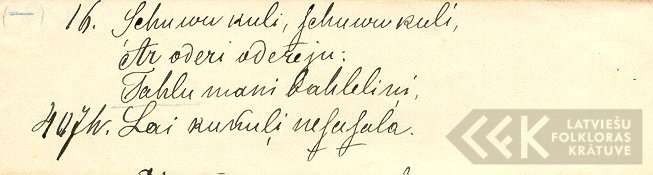 16. Schuwu kuli, schuwu kuli,
Ar oderi odereju:
Tahlu mani bahleliņi,
407h. Lai kukuļi nesasala.
LATVIEŠU
FOLKLORAS
KRĀTUVE